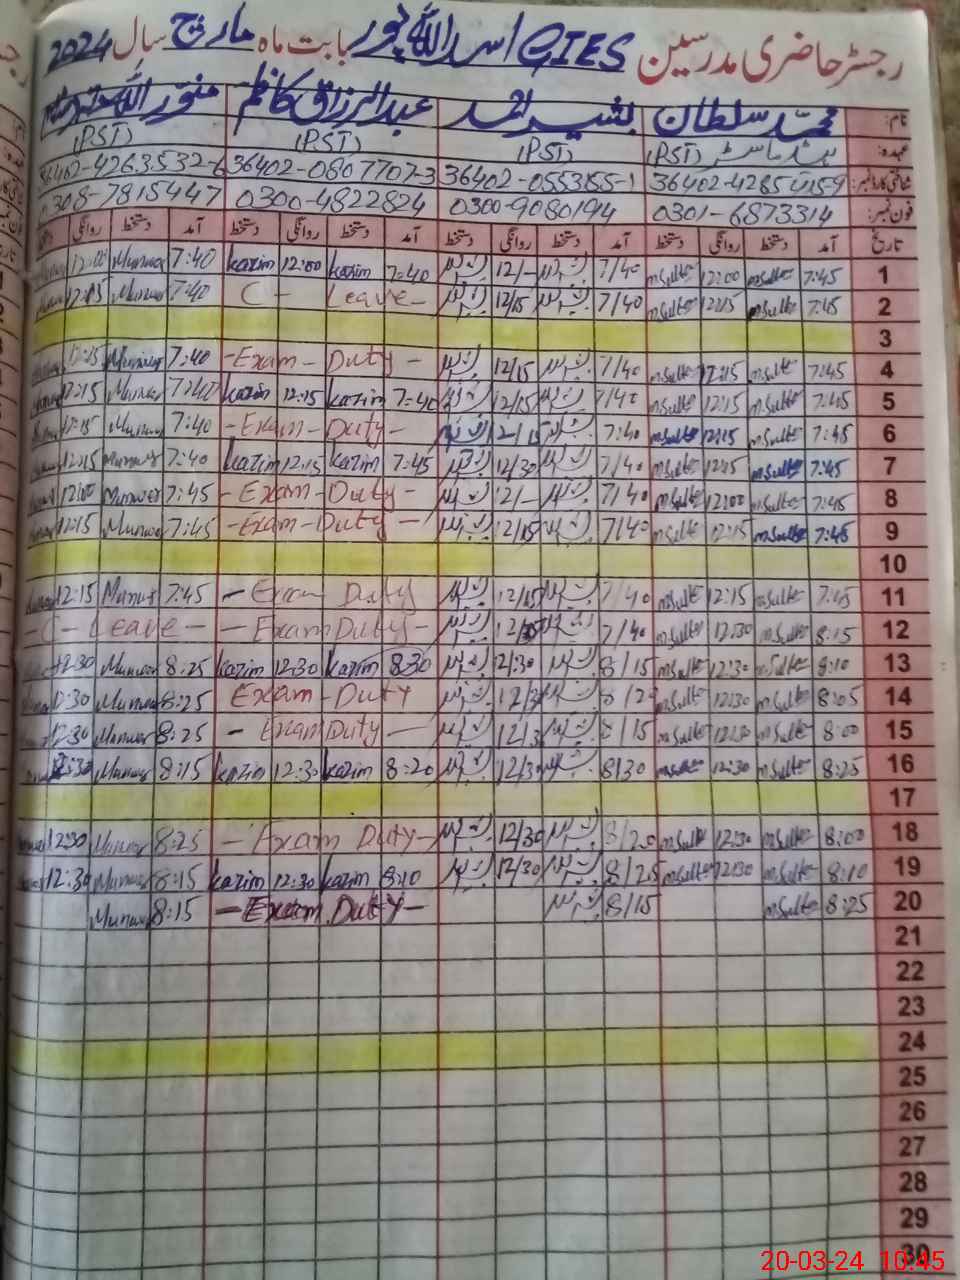 رجسٹر حاضری مدرسین GIES اسد اللہ پور بابت ماہ مارچ سال 2024
نام: محمد سلطان بشیر احمد عبدالرزاق کاظم منور اللہ
عہدہ: ہیڈ ماسٹر (PST) (PST) (PST) (PST)
شناختی کارڈ نمبر: 36402-0807707-3
فون نمبر: 0301-6873314 0300-9080194 0300-4822824 0308-7815447
تاریخ آمد دستخط روانگی دستخط آمد دستخط روانگی دستخط آمد دستخط روانگی دستخط آمد دستخط روانگی
1 7:45 m Sultan 12:00 m Sultan 7/40 12/- 7:40 kazim 12:00 kazim 7:40 Munwar 12:00
2 7:45 m Sultan 12:15 m Sultan 7/40 12/15 C - Leave - 7:40 Munwar 12:15
3
4 7:45 m Sultan 12:15 m Sultan 7/40 12/15 - Exam - Duty - 7:40 Munwar 12:15
5 7:45 m Sultan 12:15 m Sultan 7/40 12/15 7:40 kazim 12:15 kazim 7:40 Munwar 12:15
6 7:45 m Sultan 12:15 m Sultan 7:40 12/15 - Exam - Duty - 7:40 Munwar 12:15
7 7:45 m Sultan 12:15 m Sultan 7/40 12/30 7:45 kazim 12:15 kazim 7:40 Munwar 12:15
8 7:45 m Sultan 12:00 m Sultan 7/40 12/- - Exam - Duty - 7:45 Munwar 12:00
9 7:45 m Sultan 12:15 m Sultan 7/40 12/15 - Exam - Duty - 7:45 Munwar 12:15
10
11 7:45 m Sultan 12:15 m Sultan 7/40 12/15 - Exam Duty 7:45 Munwar 12:15
12 8:15 m Sultan 12:30 m Sultan 7/40 - Exam Duty - - C - Leave -
13 8:10 m Sultan 12:30 m Sultan 8/15 12/30 8:30 kazim 12:30 kazim 8:25 Munwar 12:30
14 8:05 m Sultan 12:30 m Sultan 12/30 Exam - Duty 8:25 Munwar 12:30
15 8:00 m Sultan 12:30 m Sultan 8/15 12/30 - Exam Duty - 8:25 Munwar 12:30
16 8:25 m Sultan 12:30 m Sultan 8/30 12/30 8:20 kazim 12:30 kazim 8:15 Munwar 12:30
17
18 8:00 m Sultan 12:30 m Sultan 8/20 12/30 - Exam Duty - 8:25 Munwar 12:30
19 8:10 m Sultan 12:30 m Sultan 8/25 12/30 8:10 kazim 12:30 kazim 8:15 Munwar 12:30
20 8:25 m Sultan 8/15 - Exam Duty - 8:15 Munwar
21
22
23
24
25
26
27
28
29
30
20-03-24 10:45